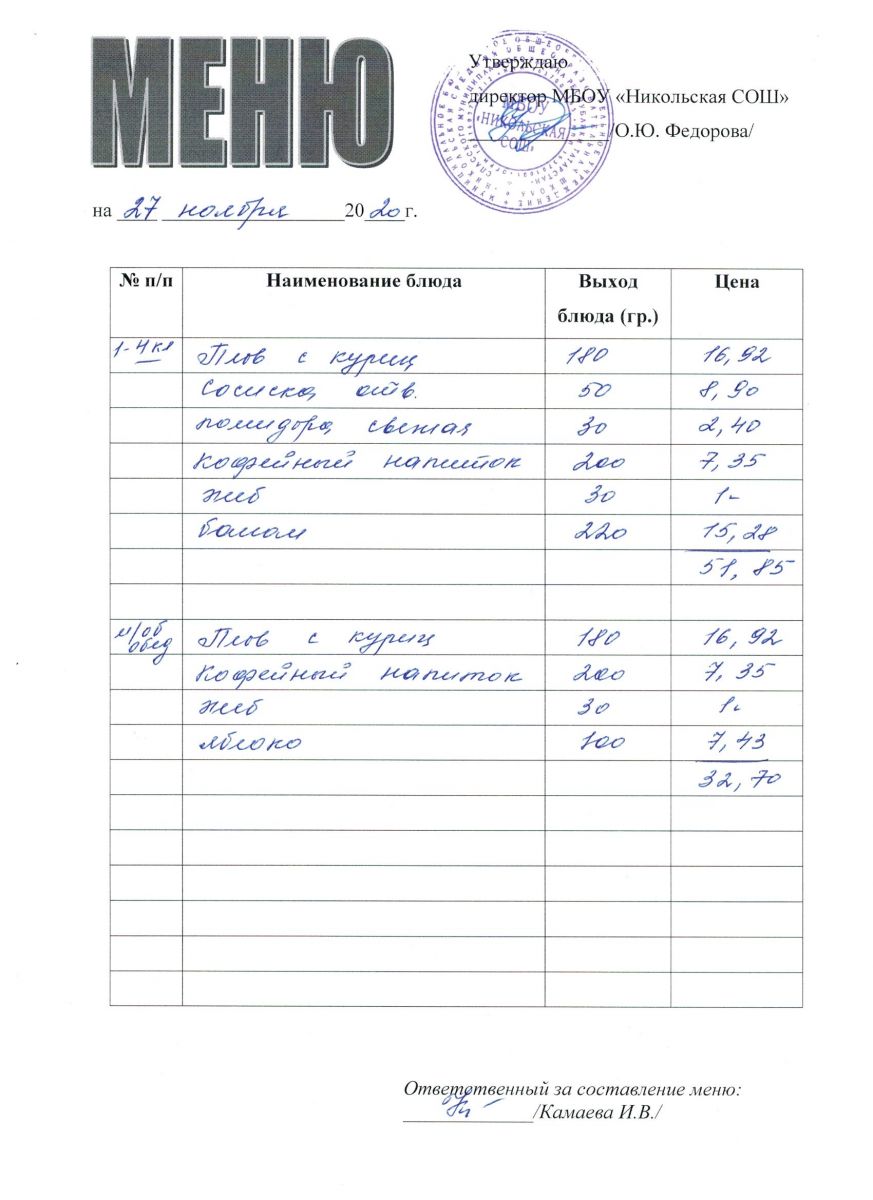 МЕНЮ
Утверждаю
директор МБОУ «Никольская СОШ»
/О.Ю. Федорова/
МБОУ
«НИКОЛЬСКАЯ
СОШ»
на 27 ноября 2020 г.
№ п/п Наименование блюда Выход блюда (гр.) Цена
1-4 кл Плов с куриц 180 16,92
Сосиска отв. 50 8,90
помидора свежая 30 2,40
Кофейный напиток 200 7,35
хлеб 30 1-
банан 220 15,28
51,85
м/об обед Плов с куриц 180 16,92
Кофейный напиток 200 7,35
хлеб 30 1-
яблоко 100 7,43
32,70
Ответственный за составление меню:
/Камаева И.В./